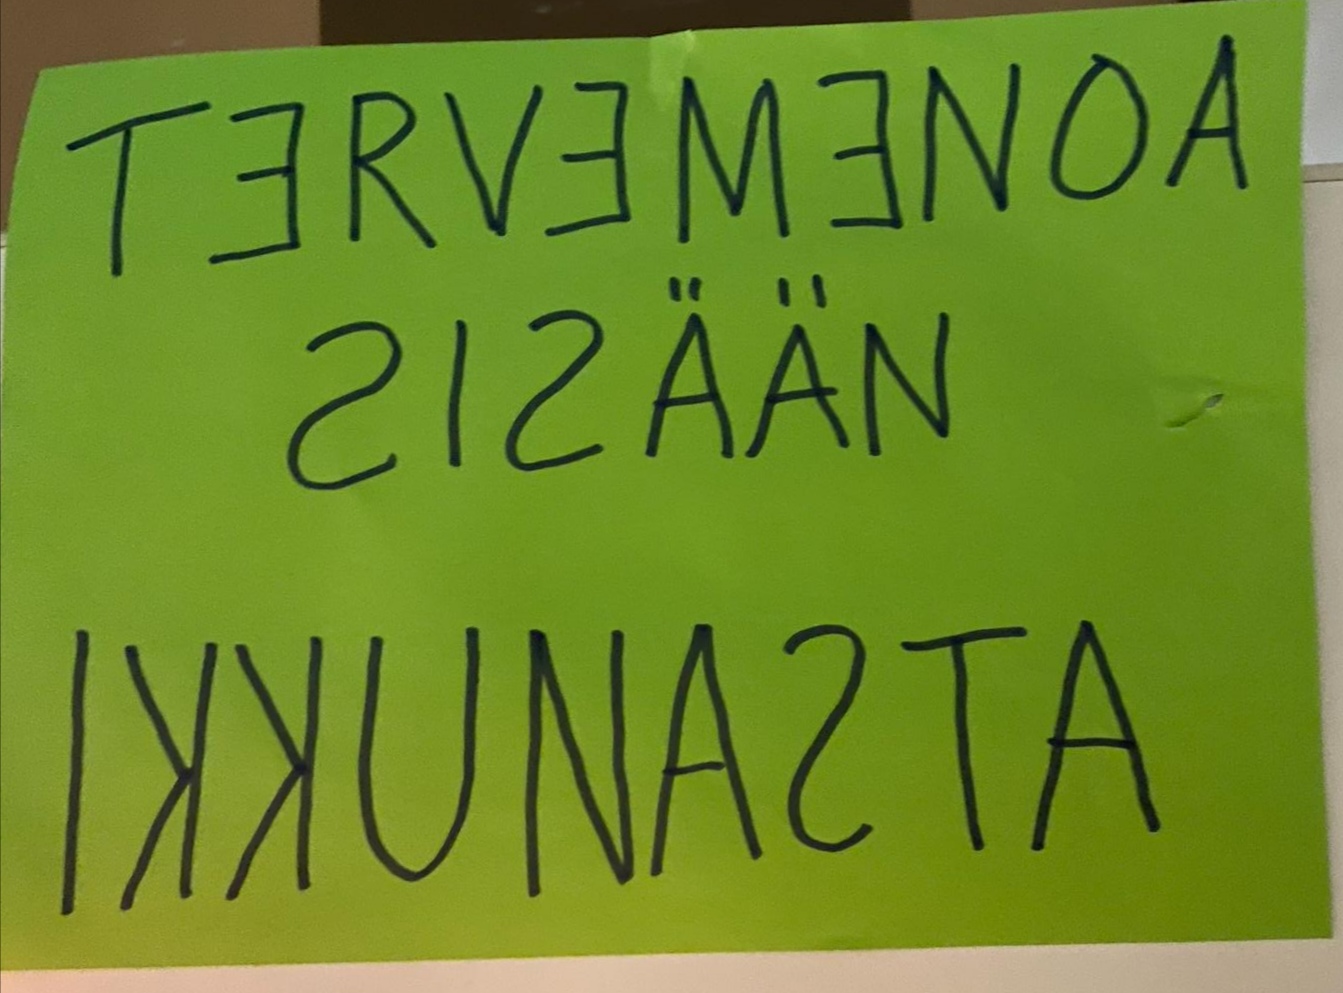 TERVEMENOA
SISÄÄN
IKKUNASTA